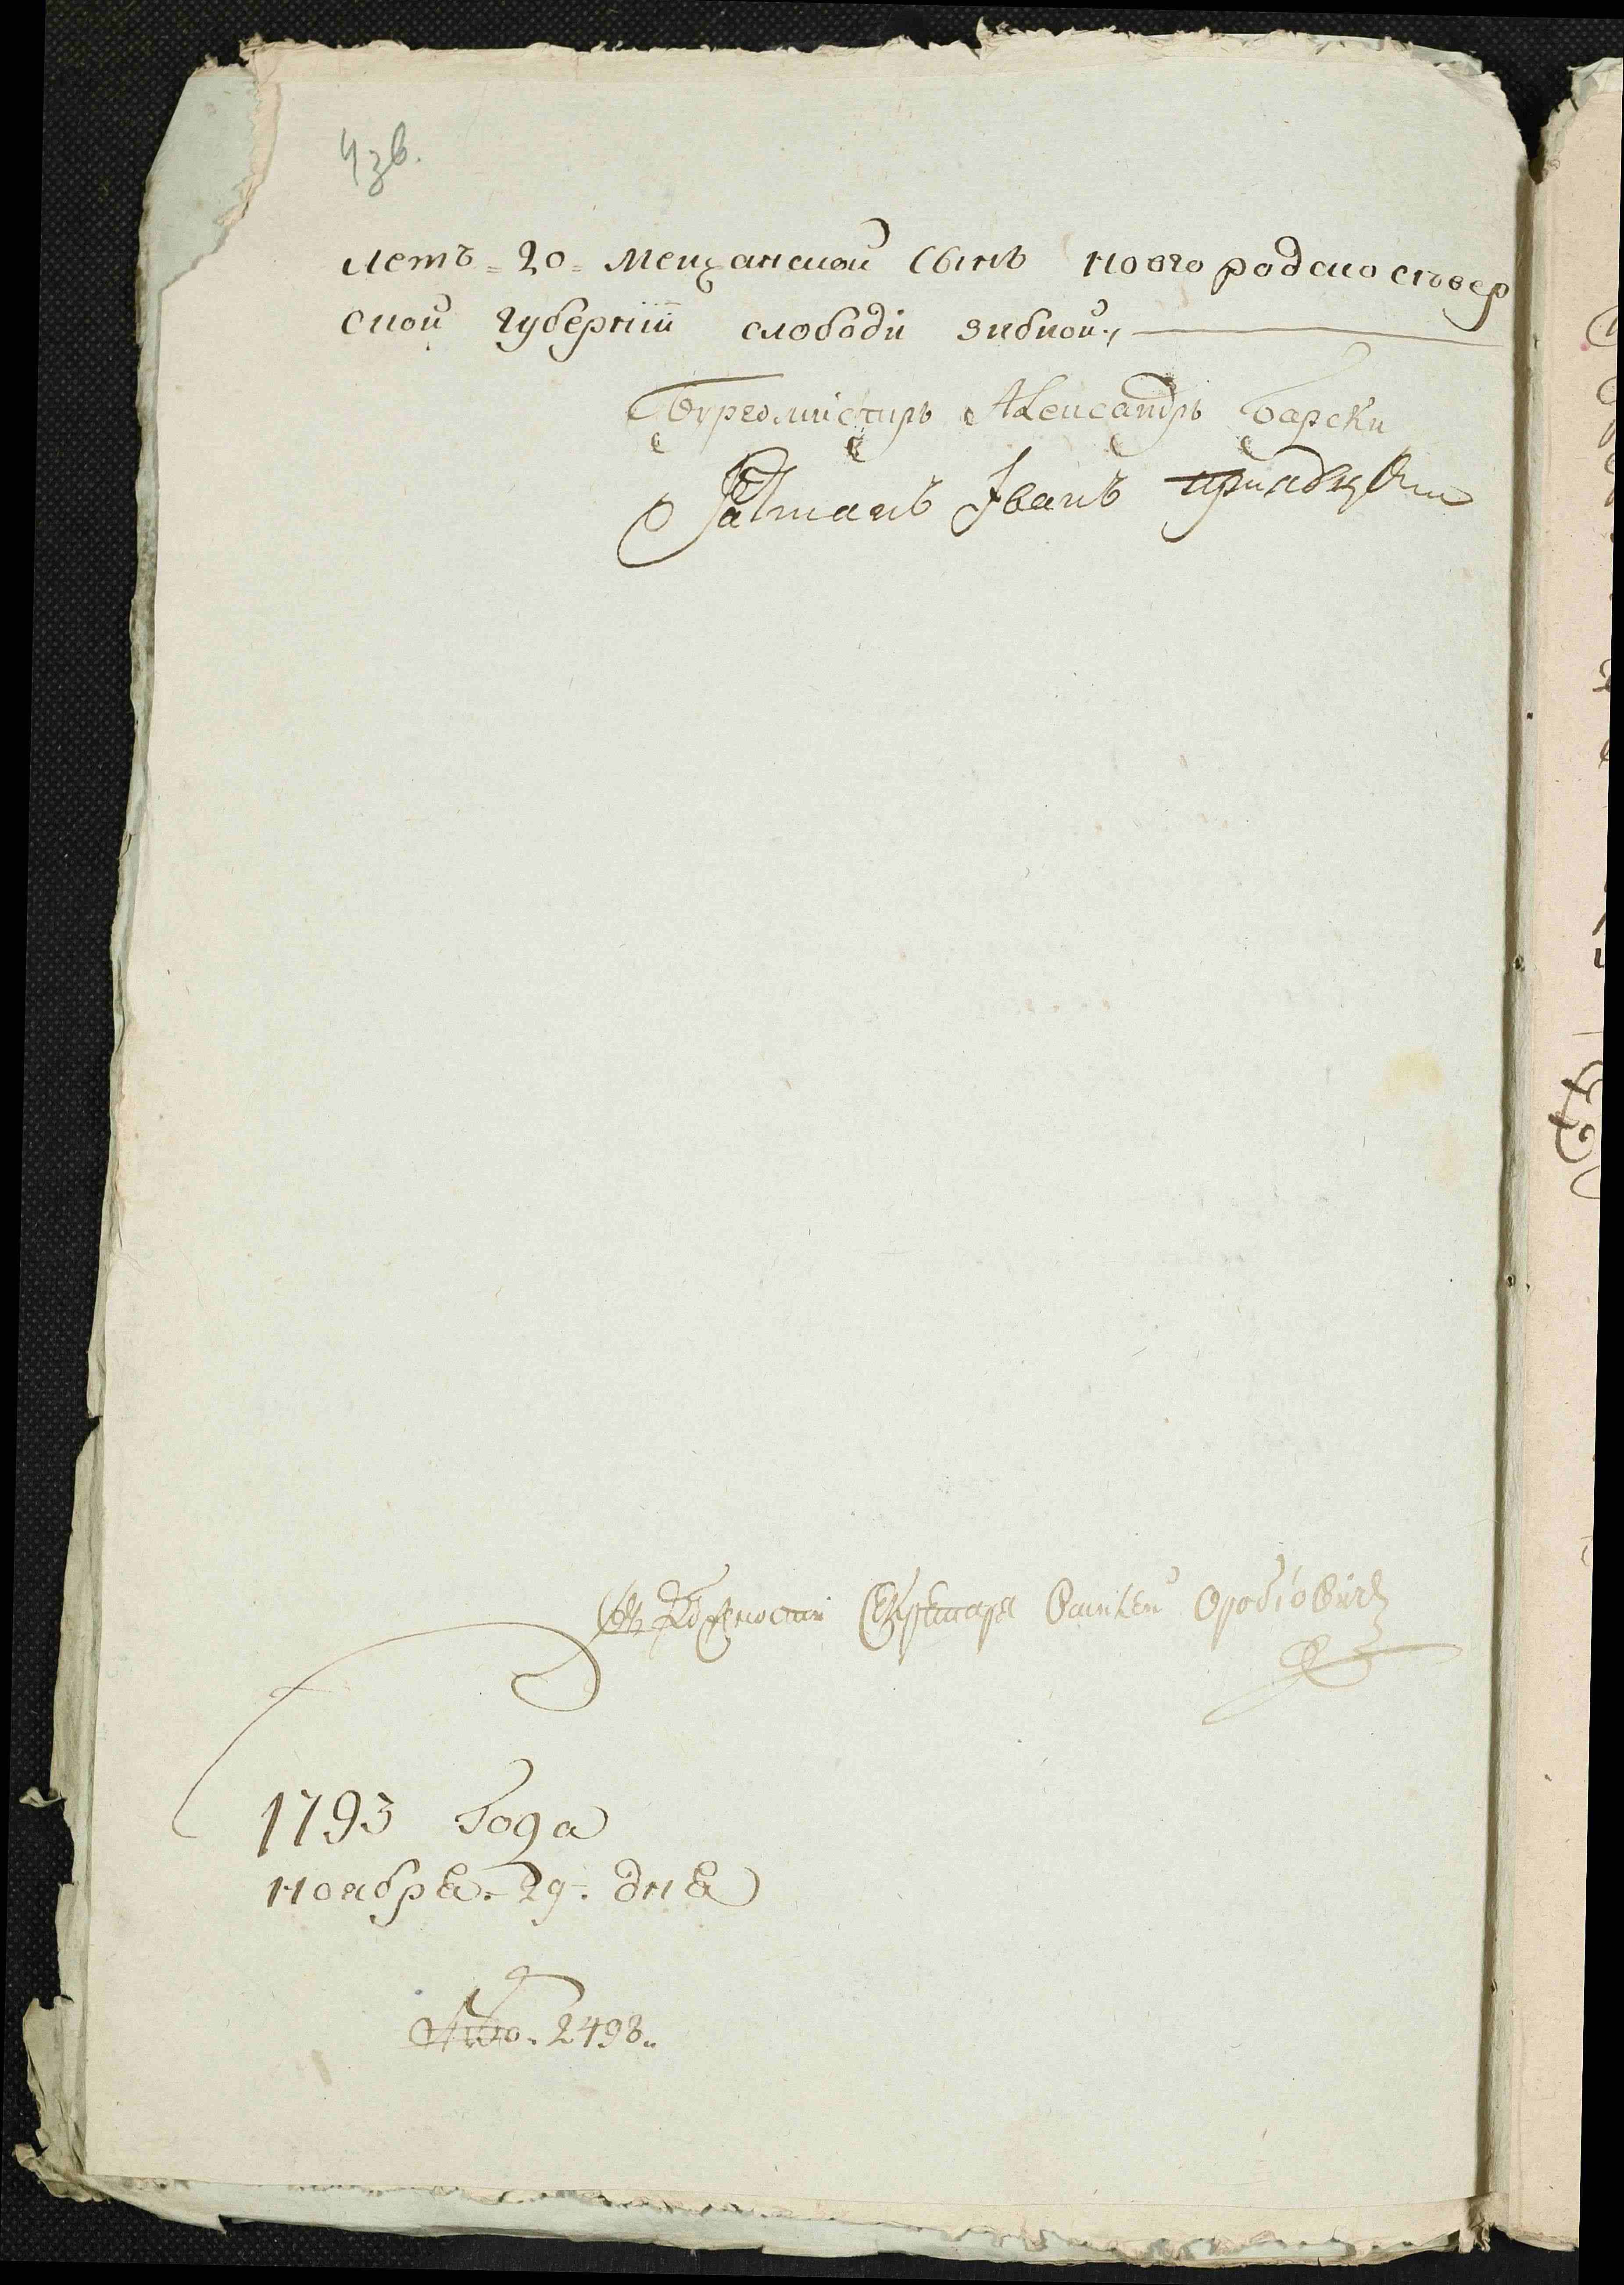 43в.
летъ = 20 = мещанской сынъ новгородско север
ской губернїи слободи зибкой.,
Бургомистиръ Александръ Барски
Ратманъ Іванъ
Въ должности Секретаря Василей
1793 года
ноября. 29. дня
№. 2498..